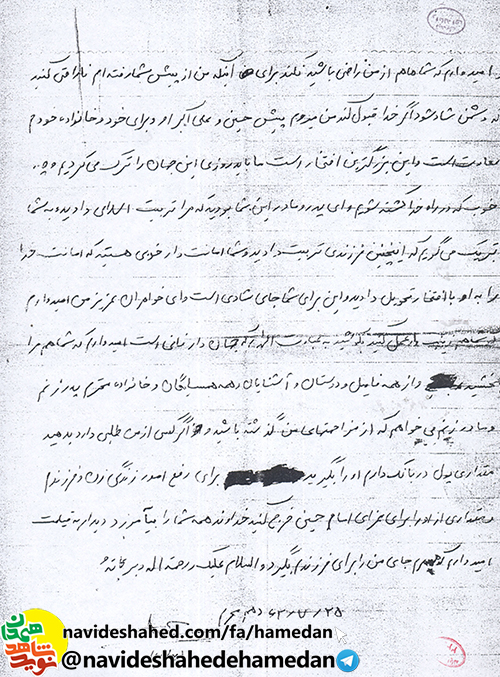 و امیدوارم که شما هم از من راضی باشید نکند برای اینکه من از پیش شما رفته ام ناراحتی کنید
که دشمن شاد شود اگر خدا قبول کند من میروم پیش حسین و علی اکبر او و برای خود و خانواده خودم
سعادت است و این بزرگترین افتخار است ما باید روزی این جهان را ترک می کردیم و چه
خوب که در راه خدا کشته شویم و ای پدر و مادر این شما بودید که مرا تربیت اسلامی دادید به شما
تبریک می گویم که اینچنین فرزندی تربیت دادید و شما امانت دار خوبی هستید که امانت خدا
را به او با افتخار تحویل دادید و این برای شما جای شادی است و ای خواهران عزیز من امیدوارم
که شما هم زینب وار عمل کنید است امیدوارم که شما هم مرا
ببخشید و از همه فامیل و دوستان و آشنایان و همه همسایگان و خانواده محترم پدر زنم
و مادر زنم می خواهم که از مزاحمتهای من گذشته باشید و اگر کس از من طلبی دارد بدهید
مقداری پول در بانک دارم او را بگیرید برای رفع امور زندگی زن و فرزندم
و مقداری از او را برای عزای امام حسین خرج کنید خداوند همه شما را بیامرزد دیدار به قیامت
امیدوارم که جای من را برای فرزندم بگیرد والسلام علیک و رحمة الله و برکاته
۶۲/۷/۲۵ دهم محرم
نوید شاهد همدان
navideshahed.com/fa/hamedan
@navideshahedehamedan